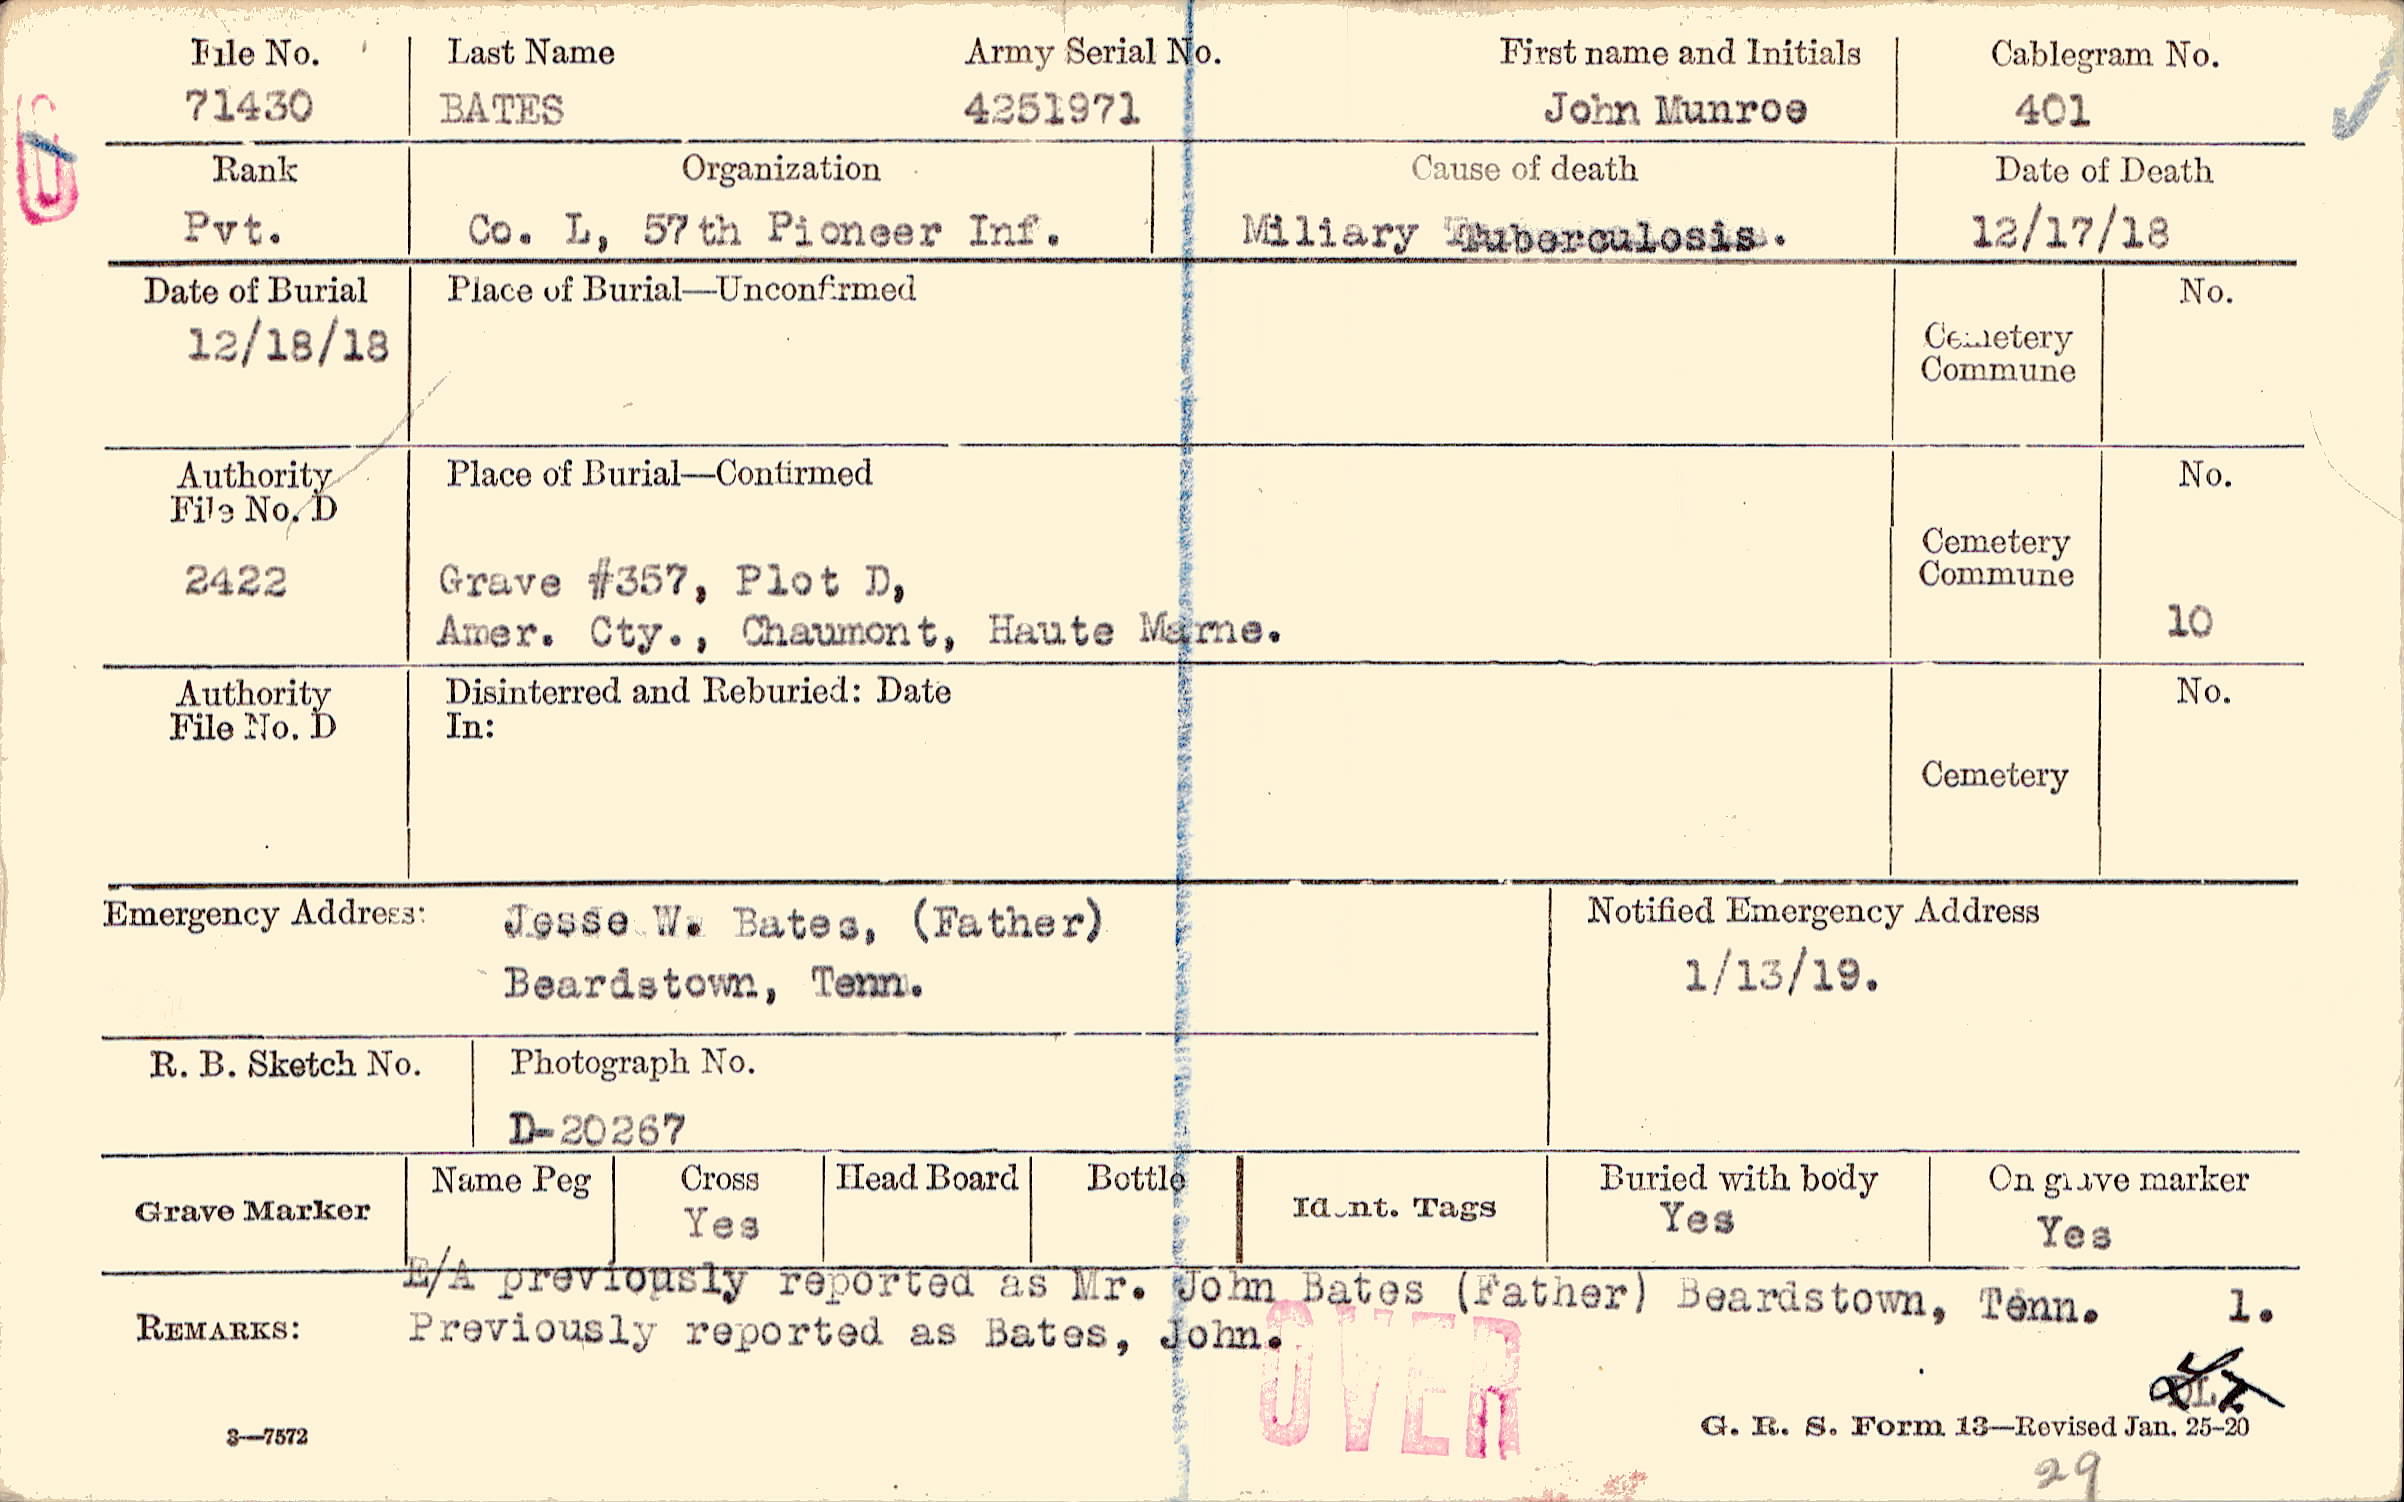 File No. Last Name Army Serial No. First name and Initials Cablegram No.
71430 BATES 4251971 John Munroe 401
Rank Organization Cause of death Date of Death
Pvt. Co. L, 57th Pioneer Inf. Miliary Tuberculosis. 12/17/18
Date of Burial Place of Burial—Unconfirmed No.
12/18/18
Cemetery
Commune
Authority Place of Burial—Confirmed No.
File No. D
Cemetery
Commune
2422 Grave #357, Plot D,
Amer. Cty., Chaumont, Haute Marne. 10
Authority Disinterred and Reburied: Date No.
File No. D In:
Cemetery
Emergency Address: Jesse W. Bates, (Father) Notified Emergency Address
Beardstown, Tenn. 1/13/19.
R. B. Sketch No. Photograph No.
D-20267
Grave Marker Name Peg Cross Head Board Bottle Ident. Tags Buried with body On grave marker
Yes Yes Yes
E/A previously reported as Mr. John Bates (Father) Beardstown, Tenn. 1.
REMARKS: Previously reported as Bates, John.
OVER
3—7572 G. R. S. Form 13—Revised Jan. 25-20
29